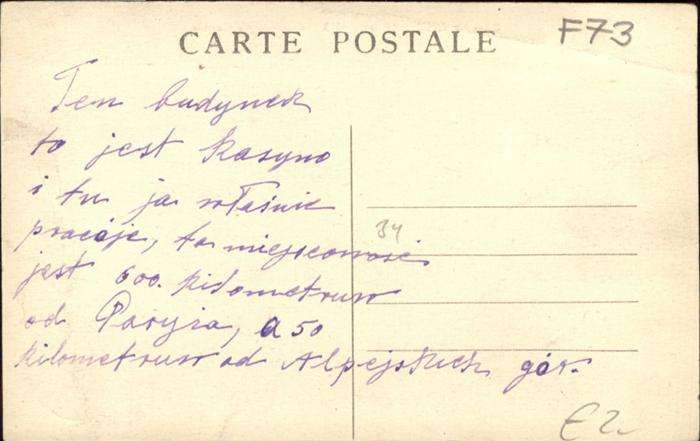 CARTE POSTALE
F73
Ten budynek
to jest Kasyno
i tu ja właśnie
pracóje, ta miejscowość
jest 600. kilometruw
od Paryża, a 50
kilometruw od Alpejskich gór.
34
£2-